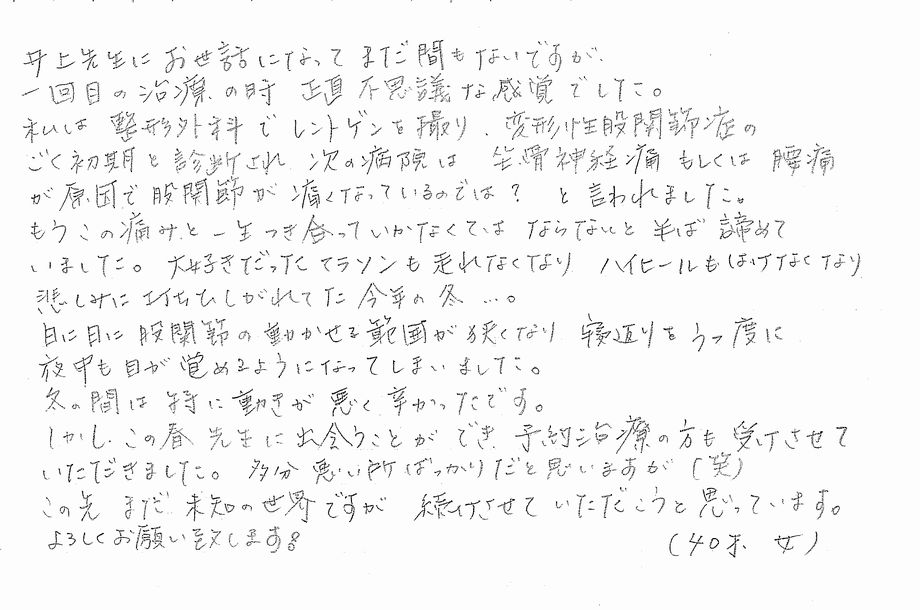 井上先生にお世話になってまだ間もないですが、
一回目の治療の時 正直不思議な感覚でした。
私は整形外科でレントゲンを撮り、変形性股関節症の
ごく初期と診断され 次の病院は 坐骨神経痛もしくは腰痛
が原因で股関節が痛くなっているのでは？ と言われました。
もうこの痛みと一生つき合っていかなくてはならないと半ば諦めて
いました。大好きだったマラソンも走れなくなり ハイヒールもはけなくなり
悲しみにうちひしがれてた今年の冬…。
日に日に股関節の動かせる範囲が狭くなり 寝返りをうつ度に
夜中も目が覚めるようになってしまいました。
冬の間は特に動きが悪く辛かったです。
しかし、この春先生に出会うことができ 予約治療の方も受けさせて
いただきました。多分悪い所ばっかりだと思いますが（笑）
この先 まだ未知の世界ですが 続けさせていただこうと思っています。
よろしくお願い致します。
（40才 女）